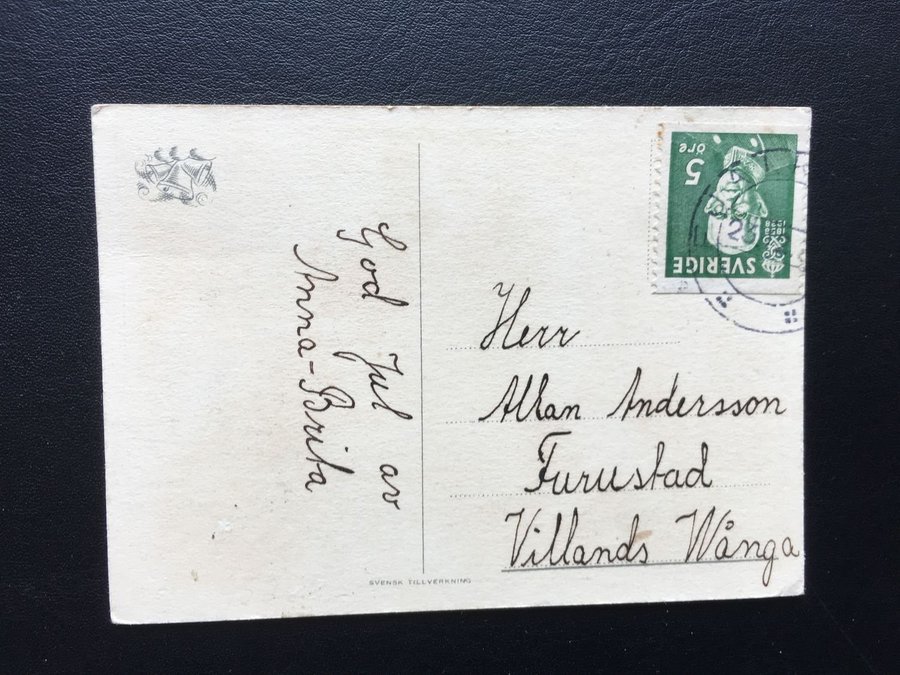 God Jul av
Anna-Brita
5 öre
1858
SVERIGE
Herr
Allan Andersson
Furustad
Villands Wånga
SVENSK TILLVERKNING